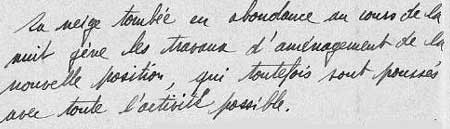 La neige tombée en abondance au cours de la
nuit gène les travaux d'aménagement de la
nouvelle position, qui toutefois sont poussés
avec toute l'activité possible.